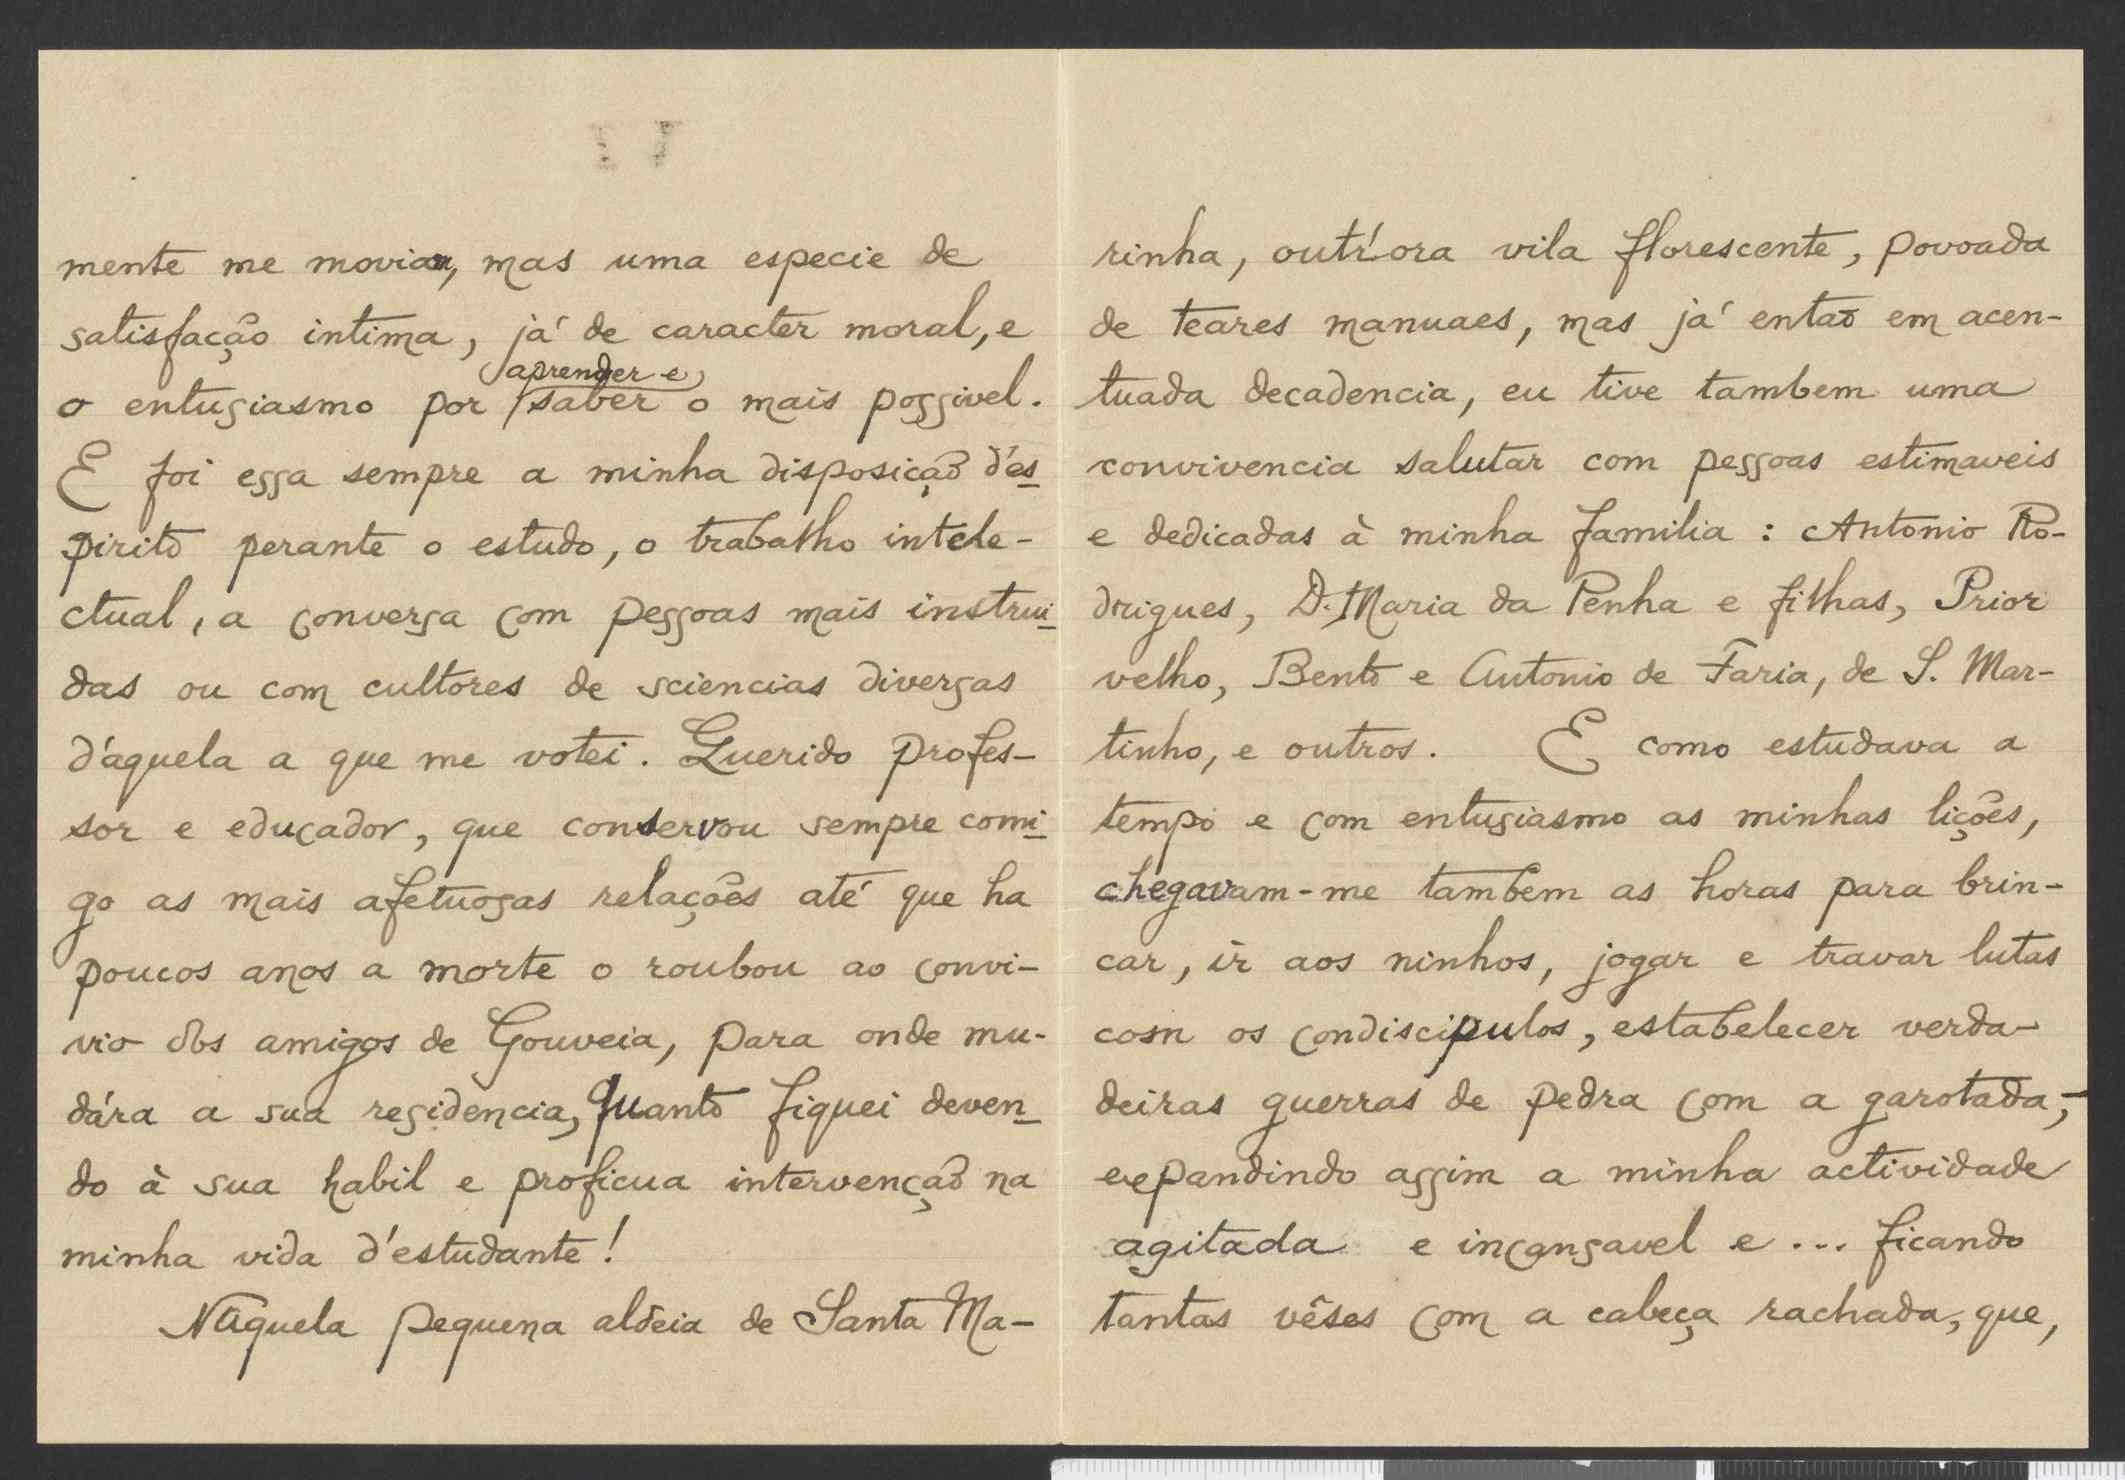 mente me moviam, mas uma especie de
satisfação intima, já de caracter moral, e
aprender e
o entusiasmo por saber o mais possivel.
E foi essa sempre a minha disposição d'es-
pirito perante o estudo, o trabalho intele-
ctual, a conversa com pessoas mais instrui-
das ou com cultores de sciencias diversas
d'aquela a que me votei. Querido profes-
sor e educador, que conservou sempre comi-
go as mais afetuosas relações até que ha
poucos anos a morte o roubou ao convi-
vio dos amigos de Gouveia, para onde mu-
dára a sua residencia, quanto fiquei deven-
do à sua habil e proficua intervenção na
minha vida d'estudante!
Naquela pequena aldeia de Santa Ma-
rinha, outr'ora vila florescente, povoada
de teares manuaes, mas já então em acen-
tuada decadencia, eu tive tambem uma
convivencia salutar com pessoas estimaveis
e dedicadas à minha familia: Antonio Ro-
drigues, D. Maria da Penha e filhas, Prior
velho, Bento e Antonio de Faria, de S. Mar-
tinho, e outros. E como estudava a
tempo e com entusiasmo as minhas lições,
chegavam-me tambem as horas para brin-
car, ir aos ninhos, jogar e travar lutas
com os condiscipulos, estabelecer verda-
deiras guerras de pedra com a garotada,-
expandindo assim a minha actividade
agitada e incansavel e ... ficando
tantas vêses com a cabeça rachada, que,